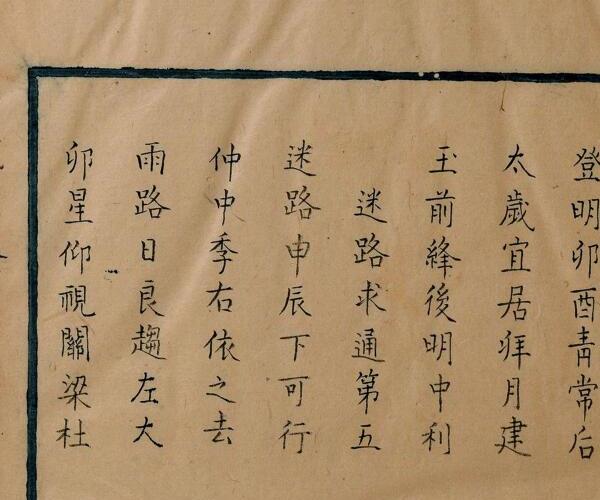 登明卯酉青常后
太歲宜居拜月建
玉前絳後明中利
迷路求通第五
迷路申辰下可行
仲中季右依之去
雨路日良趨左大
卯星仰視關梁杜